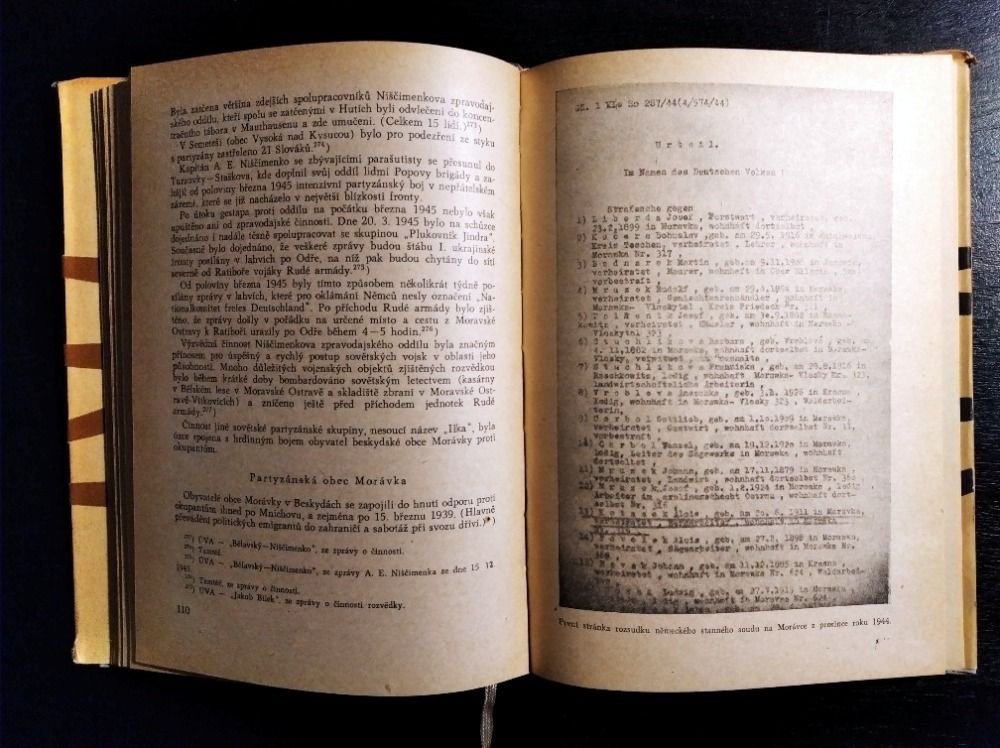 Byla zatčena většina zdejších spolupracovníků Niščimenkova zpravodaj-
ského oddílu, kteří spolu se zatčenými v Hutích byli odvlečeni do koncen-
tračního tábora v Mauthausenu a zde umučeni. (Celkem 15 lidí.)²⁷³)
V Semeteši (obec Vysoká nad Kysucou) bylo pro podezření ze styku
s partyzány zastřeleno 21 Slováků.²⁷⁴)
Kapitán A. E. Niščimenko se zbývajícími parašutisty se přesunul do
Turzovky—Staškova, kde doplnil svůj oddíl lidmi Popovy brigády a za-
hájil od poloviny března 1945 intenzivní partyzánský boj v nepřátelském
zázemí, které se již nacházelo v největší blízkosti fronty.
Po útoku gestapa proti oddílu na počátku března 1945 nebylo však
upuštěno ani od zpravodajské činnosti. Dne 20. 3. 1945 bylo na schůzce
dojednáno i nadále těsně spolupracovat se skupinou „Plukovník Jindra".
Současně bylo dojednáno, že veškeré zprávy budou štábu I. ukrajinské
fronty posílány v lahvích po Odře, na níž pak budou chytány do sítí
severně od Ratiboře vojáky Rudé armády.²⁷⁵)
Od poloviny března 1945 byly tímto způsobem několikrát týdně po-
sílány zprávy v lahvích, které pro oklamání Němců nesly označení „Na-
tionalkomitet freies Deutschland". Po příchodu Rudé armády bylo zjiš-
těno, že zprávy došly v pořádku na určené místo a cestu z Moravské
Ostravy k Ratiboři urazily po Odře během 4—5 hodin.²⁷⁶)
Výzvědná činnost Niščimenkova zpravodajského oddílu byla značným
přínosem pro úspěšný a rychlý postup sovětských vojsk v oblasti jeho
působnosti. Mnoho důležitých vojenských objektů zjištěných rozvědkou
bylo během krátké doby bombardováno sovětským letectvem (kasárny
v Bělském lese v Moravské Ostravě a skladiště zbraní v Moravské Ost-
ravě-Vítkovicích) a zničeno ještě před příchodem jednotek Rudé
armády.²⁷⁷)
Činnost jiné sovětské partyzánské skupiny, nesoucí název „Ilka", byla
úzce spojena s hrdinným bojem obyvatel beskydské obce Morávky proti
okupantům.
Partyzánská obec Morávka
Obyvatelé obce Morávky v Beskydech se zapojili do hnutí odporu proti
okupantům ihned po Mnichovu, a zejména po 15. březnu 1939. (Hlavně
převádění politických emigrantů do zahraničí a sabotáž při svozu dříví.)
²⁷³) ÚVA — „Bělavský—Niščimenko", ze zprávy o činnosti.
²⁷⁴) Tamtéž.
²⁷⁵) ÚVA — „Bělavský—Niščimenko", ze zprávy A. E. Niščimenka ze dne 15. 12.
1945.
²⁷⁶) Tamtéž, ze zprávy o činnosti.
²⁷⁷) ÚVA — „Jakub Bílek", ze zprávy o činnosti rozvědky.
110
1 KLs So 287/44(4/574/44)
Urteil.
Im Namen des Deutschen Volkes!
Strafsache gegen
1) Liberda Josef, Forstwart, verheiratet, geb.
23.2.1899 in Morawka, wohnhaft dortselbst,
2) Kučera Bohuslav, geb. am 29.5.1916 in
Kreis Teschen, verheiratet, Lehrer, wohnhaft in
Morawka Nr. 317,
3) Bednarek Martin, geb. am 9.11.
verheiratet, Maurer, wohnhaft in Ober
vorbestraft,
4) Mrusek Rudolf, geb. am 29.4. in Morawka,
verheiratet, Gemischtwarenhändler, wohnhaft in
Morawka-Vlaskytal, Kreis Friedeck
Josef, geb. am
verheiratet, Häusler, wohnhaft in Morawka-
Vlaskytal 323
6) Stuchlikova Barbara, geb.
4.11.1882 in Morawka, wohnhaft dortselbst in Morawka-
Vlasky, verwitwet,
7) Stuchlikova Franziska, geb. am 29.8.1916 in
Raschkowitz, ledig, wohnhaft in Morawka-Vlasky Nr. 323,
landwirtschaftliche Arbeiterin,
8) Vrblova Anezka, geb. in Krasna,
ledig, wohnhaft in Morawka-Vlasky 323, Waldarbei-
terin,
9) Carbol Gottlieb, geb. am 1.10.1909 in Morawka,
Gastwirt, wohnhaft dortselbst Nr. 11,
vorbestraft,
10) Carbol Wenzel, geb. am 19.12.1920 in Morawka,
ledig, Leiter des Sägewerks in Morawka, wohnhaft
dortselbst,
11) Mrusek Johann, geb. am 17.11.1879 in Morawka,
verheiratet, Landwirt, wohnhaft dortselbst Nr.
12) Mrusek, geb. am 1.2.1924 in Morawka, ledig,
Arbeiter im Ostrau, wohnhaft dort-
selbst Nr. 316
13) Alois, geb. am 30.6.1911 in Morawka,
verheiratet, wohnhaft in Morawka
14) Alois, geb. am 27.2.1898 in Morawka,
verheiratet, Sägearbeiter, wohnhaft in Morawka Nr.
Johann, geb. am 11.12.1905 in Krasna,
verheiratet, wohnhaft in Morawka Nr. 624, Waldarbei-
Ludwig, geb. am 27.7.1919 in Morawka,
wohnhaft in Morawka Nr. 624,
První stránka rozsudku německého stanného soudu na Morávce z prosince roku 1944.